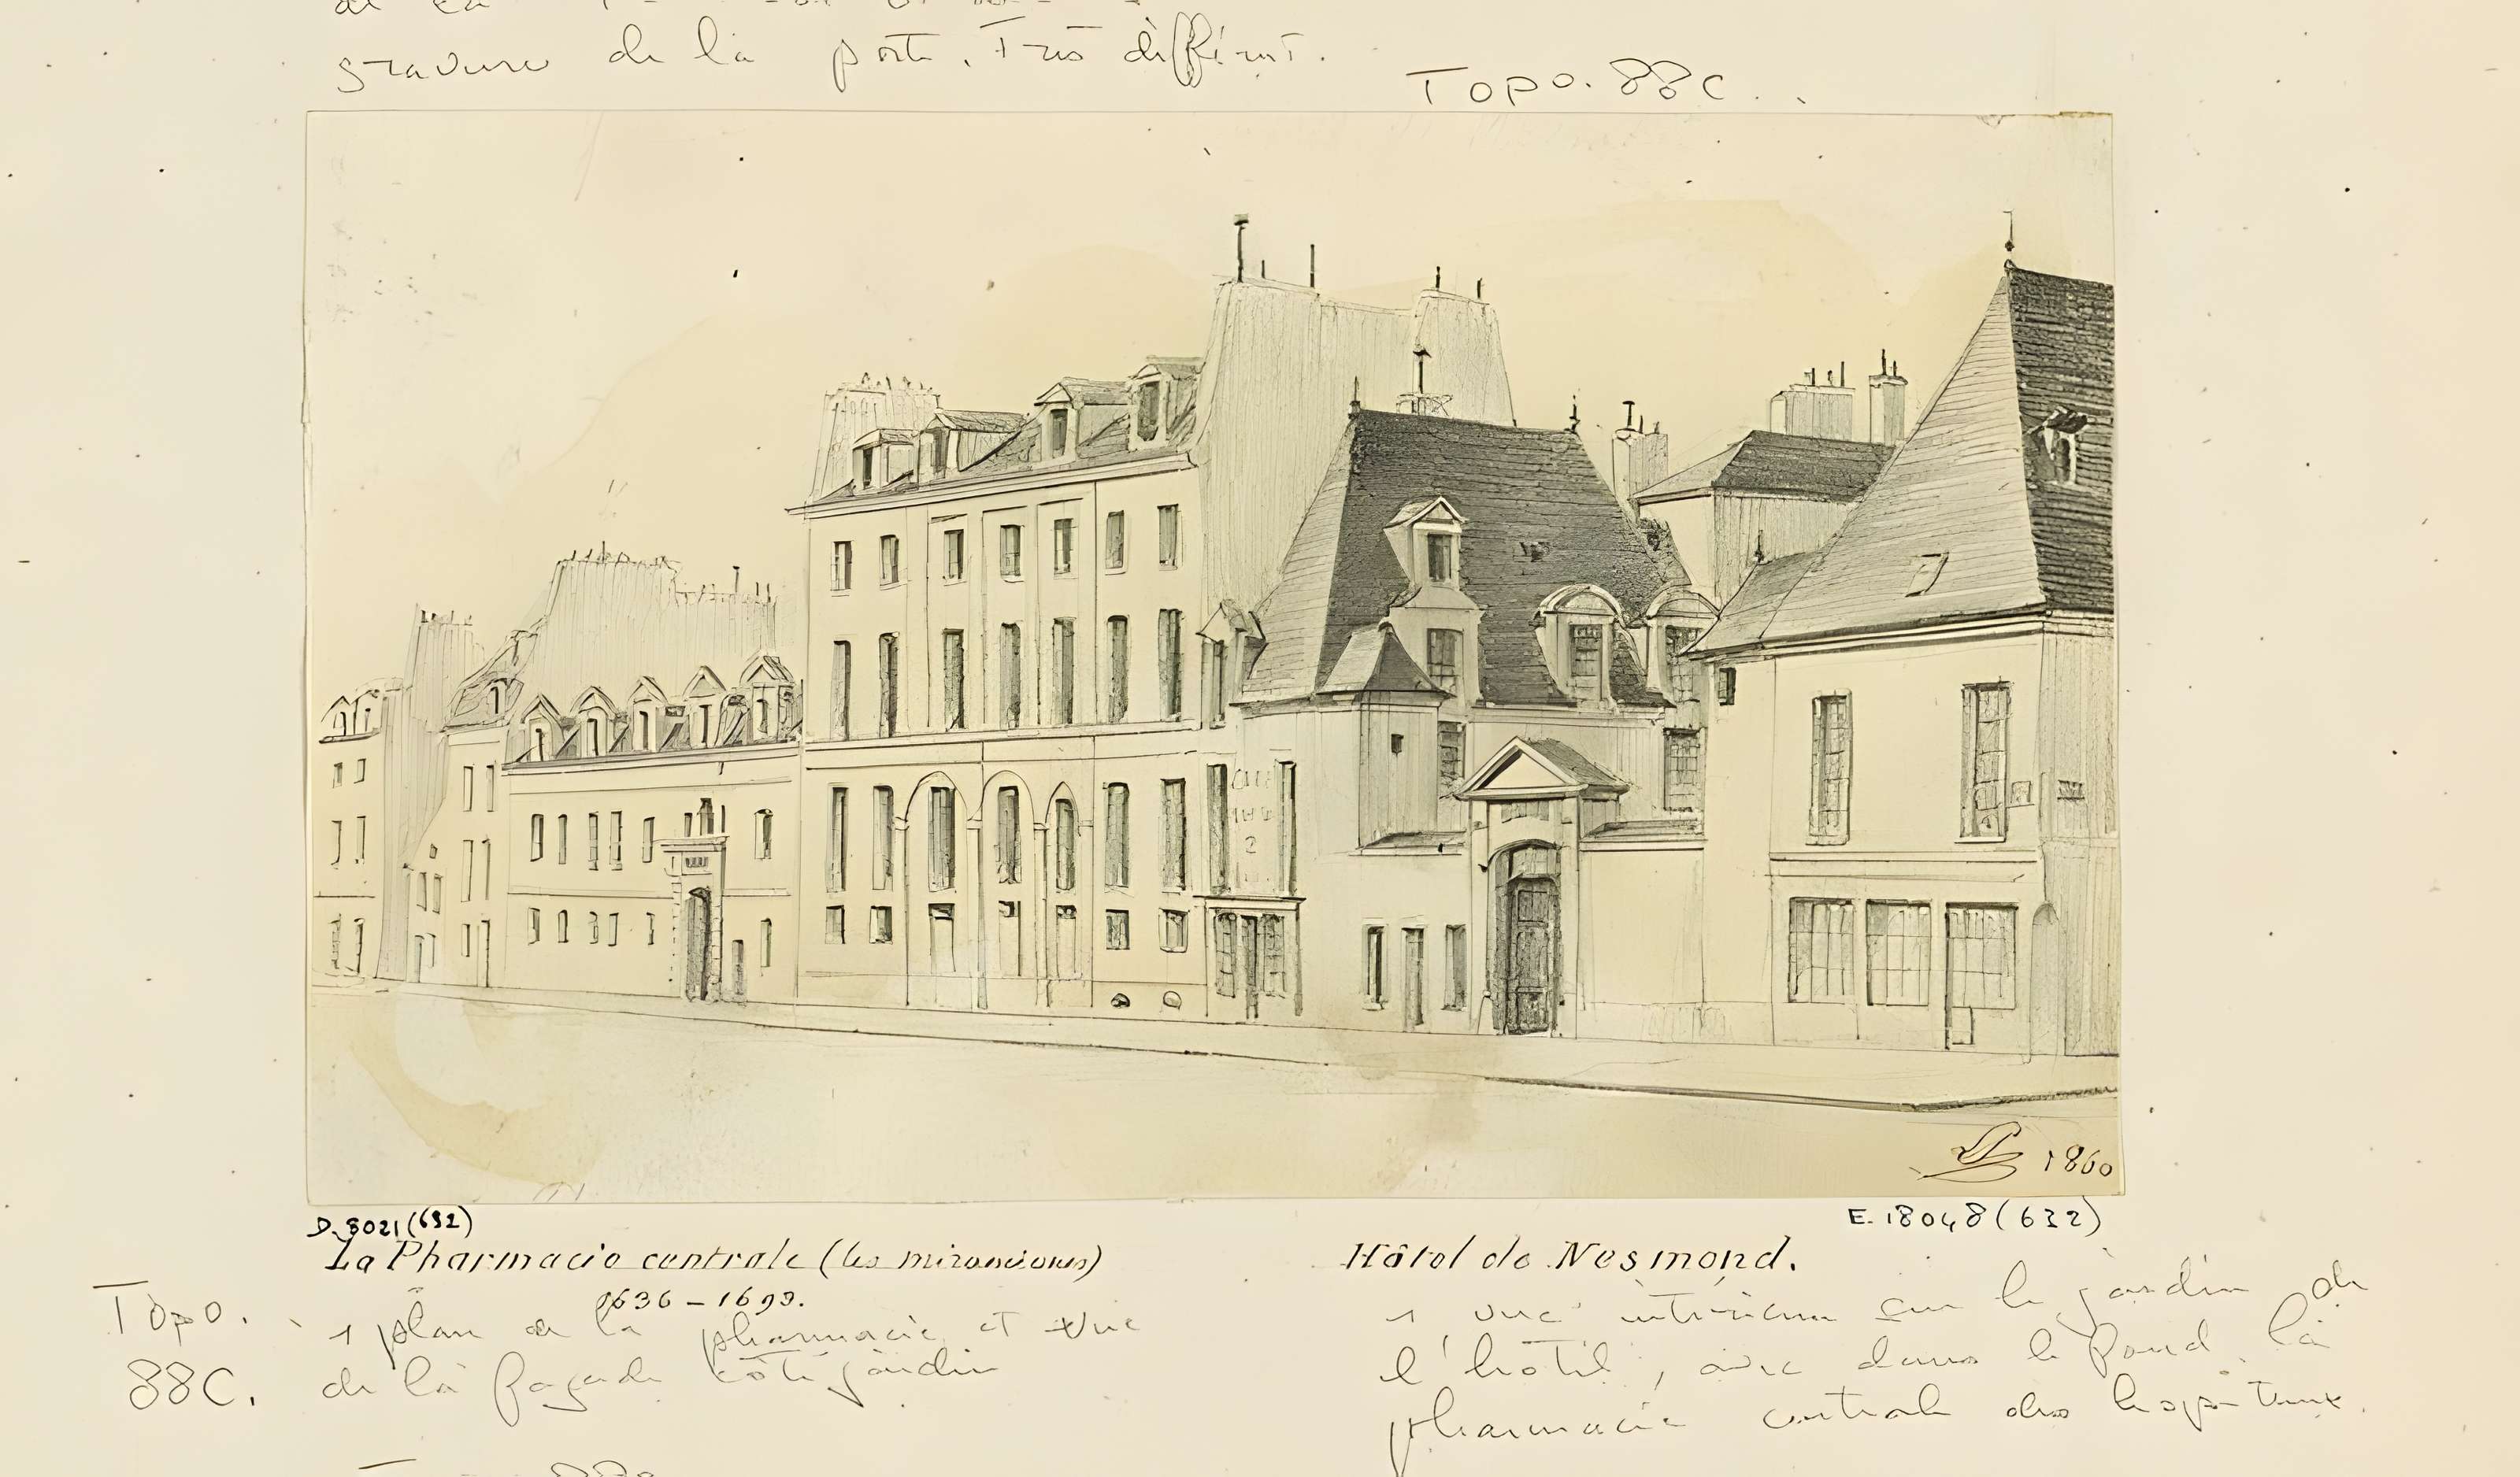 gravure de la porte. Très différent.
Topo. 88C.
1860
D.8021(632)
E.18048(632)
La Pharmacie centrale (les miramiones)
1636 - 1693.
Hôtel de Nesmond.
Topo.
88C.
1 plan de la pharmacie et vue
de la façade côté jardin
1 vue intérieure sur le jardin de
l'hôtel, avec dans le fond la
pharmacie centrale des hôpitaux.